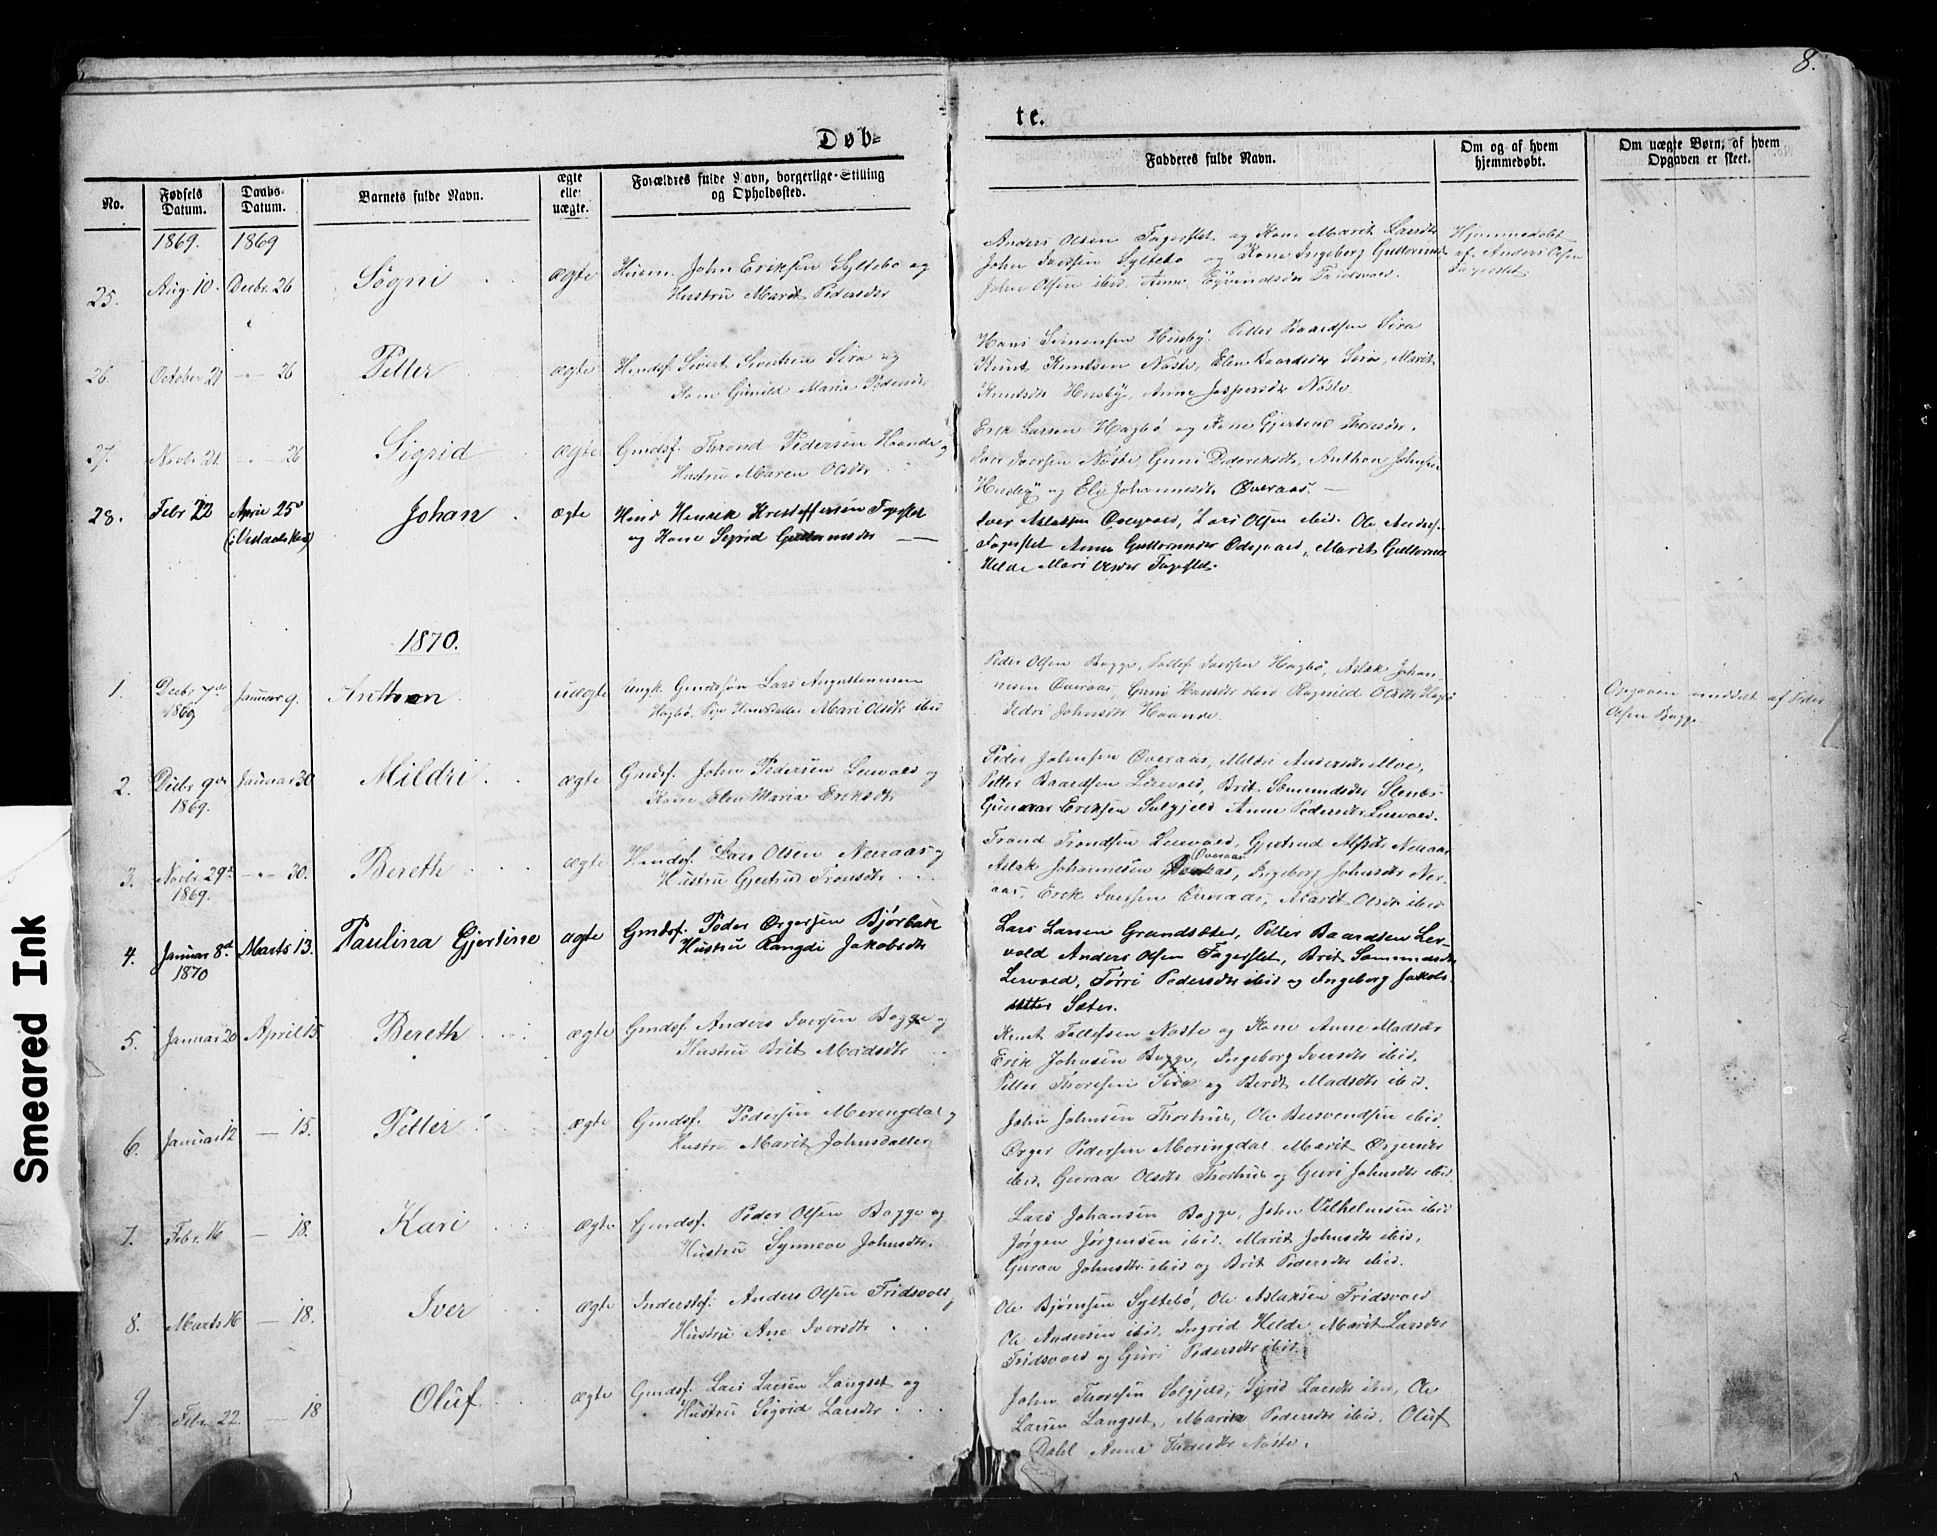 8.
Døb-
te.
No.
Fødsels Datum.
Daabs-Datum.
Barnets fulde Navn.
ægte eller uægte.
Forældres fulde Navn, borgerlige-Stilling
og Opholdssted.
Fadderes fulde Navn.
Om og af hvem
hjemmedøbt.
Om uægte Børn, af hvem
Opgaven er skeet.
1869. 1869
25. Aug. 10. Decbr. 26 Søgni ægte Husm. John Eriksen Syltebø og
Hustru Marit Pedersdtr
Anders Olsen Fagerslet og Kone Marit Larsdtr
John Iversen Syltebø og Kone Ingeborg Guttormsdr
John Olsen ibid. Anne Eyvindsdtr Tridsvold.
Hjemmedøbt
af Anders Olsen
Fagerslet
26. October 21 -"- 26 Petter ægte Gmdsf. Sivert Sivertsen Sira og
Kone Gunild Maria Pedersdtr
Hans Simensen Husby. Petter Baardsen Sira
Knut Knutsen Nøste, Elen Baardsdtr Sira, Marit
Knutsdtr Husby, Anne Jespersdtr Nøste.
27. Novbr. 21. -"- 26 Sigrid ægte Gmdsf. Thrond Pedersen Haande og
Hustru Maren Olsdtr
Erik Larsen Hagbø og Kone Gjertrud Thoresdtr.
Iver Iversen Nøste, Guni Dideriksdtr, Anthon Johnsen
Husby og Eli Johannesdtr Øveraas. —
28. Febr 22 April 25 Johan ægte Henrik Kristoffersen Fagerslet
og Kone Sigrid Guttormsdtr —
Iver Aslaksen Lars Olsen ibid. Ole Anders.
Fagerslet Anne Guttormsdtr Ødegaard, Marit Guttormsd
Helde Mari Olsdtr Fagerslet.
1870.
1. Decbr 7de
1869 Januar 9. Anthon uægte Ungk. Gmdssøn Lars Augustinussen
Hagbø, Pige Mari Olsdtr ibid
Peder Olsen Bugge, Tollef Iversen Hagbø, Aslak Johan-
nesen Øveraas, Guni Hansdtr ibid Ragnild Olsdtr Hagbø
Ildri Johnsdtr Haande.
Opgaven meddelt af Peder
Olsen Bugge
2. Decbr 9de
1869. Januar 30. Mildri ægte Gmdsf. John Pedersen Lervold og
Kone Elen Maria Eriksdtr
Peder Johnsen Øveraas, Mildri Andersdtr Moe,
Petter Baardsen Lervold, Brit Sæmundsdtr Slenes
Gunnar Eriksen Solgjeld Anne Pedersdtr Lervold.
3. Novbr 29de
1869. -"- 30. Bereth ægte Gmdsf. Lars Olsen Neraas og
Hustru Gjertrud Tronsdtr
Trond Trondsen Lervold, Gjertrud Neraas
Aslak Johannesen Øveraas, Ingeborg Johnsdtr Ner-
aas, Erik Iversen Øveraas, Marit Olsdtr ibid
4. Januar 8de
1870 Marts 13. Paulina Gjertine ægte Gmdsf. Peder Ørgersen Bjørbak
Hustru Rangdi Jakobsdtr
Lars Larsen Grandsæter, Petter Baardsen Ler-
vold Anders Olsen Fagerslet, Brit Sæmundsdtr
Lervold, Tørri Pedersdtr ibid og Ingeborg Jakobs-
datter Sæter.
5. Januar 20 April 15 Bereth ægte Gmdsf. Anders Iversen Bugge og
Hustru Brit Madsdtr
Knut Tollefsen Nøste og Kone Anne Madsdtr
Erik Johnsen Bugge, Ingeborg Iversdtr ibid,
Petter Thoresen Sira og Berit Madsdtr ibid.
6. Januar 12 — 15. Petter ægte Gmdsf. Pedersen Meringdal og
Hustru Marit Johnsdatter
John Johnsen Thorhus, Ole Bersvendsen ibid.
Ørger Pedersen Meringdal Marit Ørgersdtr
ibid. Guraa Olsdtr Thorhus og Guri Johnsdtr ibid.
7. Febr. 16 — 18. Kari ægte Gmdsf. Peder Olsen Bugge og
Hustru Synneve Johnsdtr.
Lars Johansen Bugge, John Vilhelmsen ibid
Jørgen Jørgensen ibid. Marit Johnsdtr ibid,
Guraa Johnsdtr ibid og Brit Pedersdtr ibid.
8. Marts 16 — 18. Iver ægte Inderstef. Anders Olsen Tridsvold,
Hustru Ane Iversdtr
Ole Bjørnsen Syltebø, Ole Aslaksen Tridsvold
Ole Andersen ibid, Ingrid Helde Marit Larsdtr
Tridsvold og Guri Pedersdtr ibid.
9. Febr. 22. — 18 Oluf ægte Gmdsf. Lars Larsen Langset og
Hustru Sigrid Larsdtr
John Thoresen Solgjeld, Sigrid Larsdtr ibid, Ole
Larsen Langset, Marit Pedersdtr ibid. Oluf
Dahl Anne Thoresdtr Nøste.
Smeared Ink